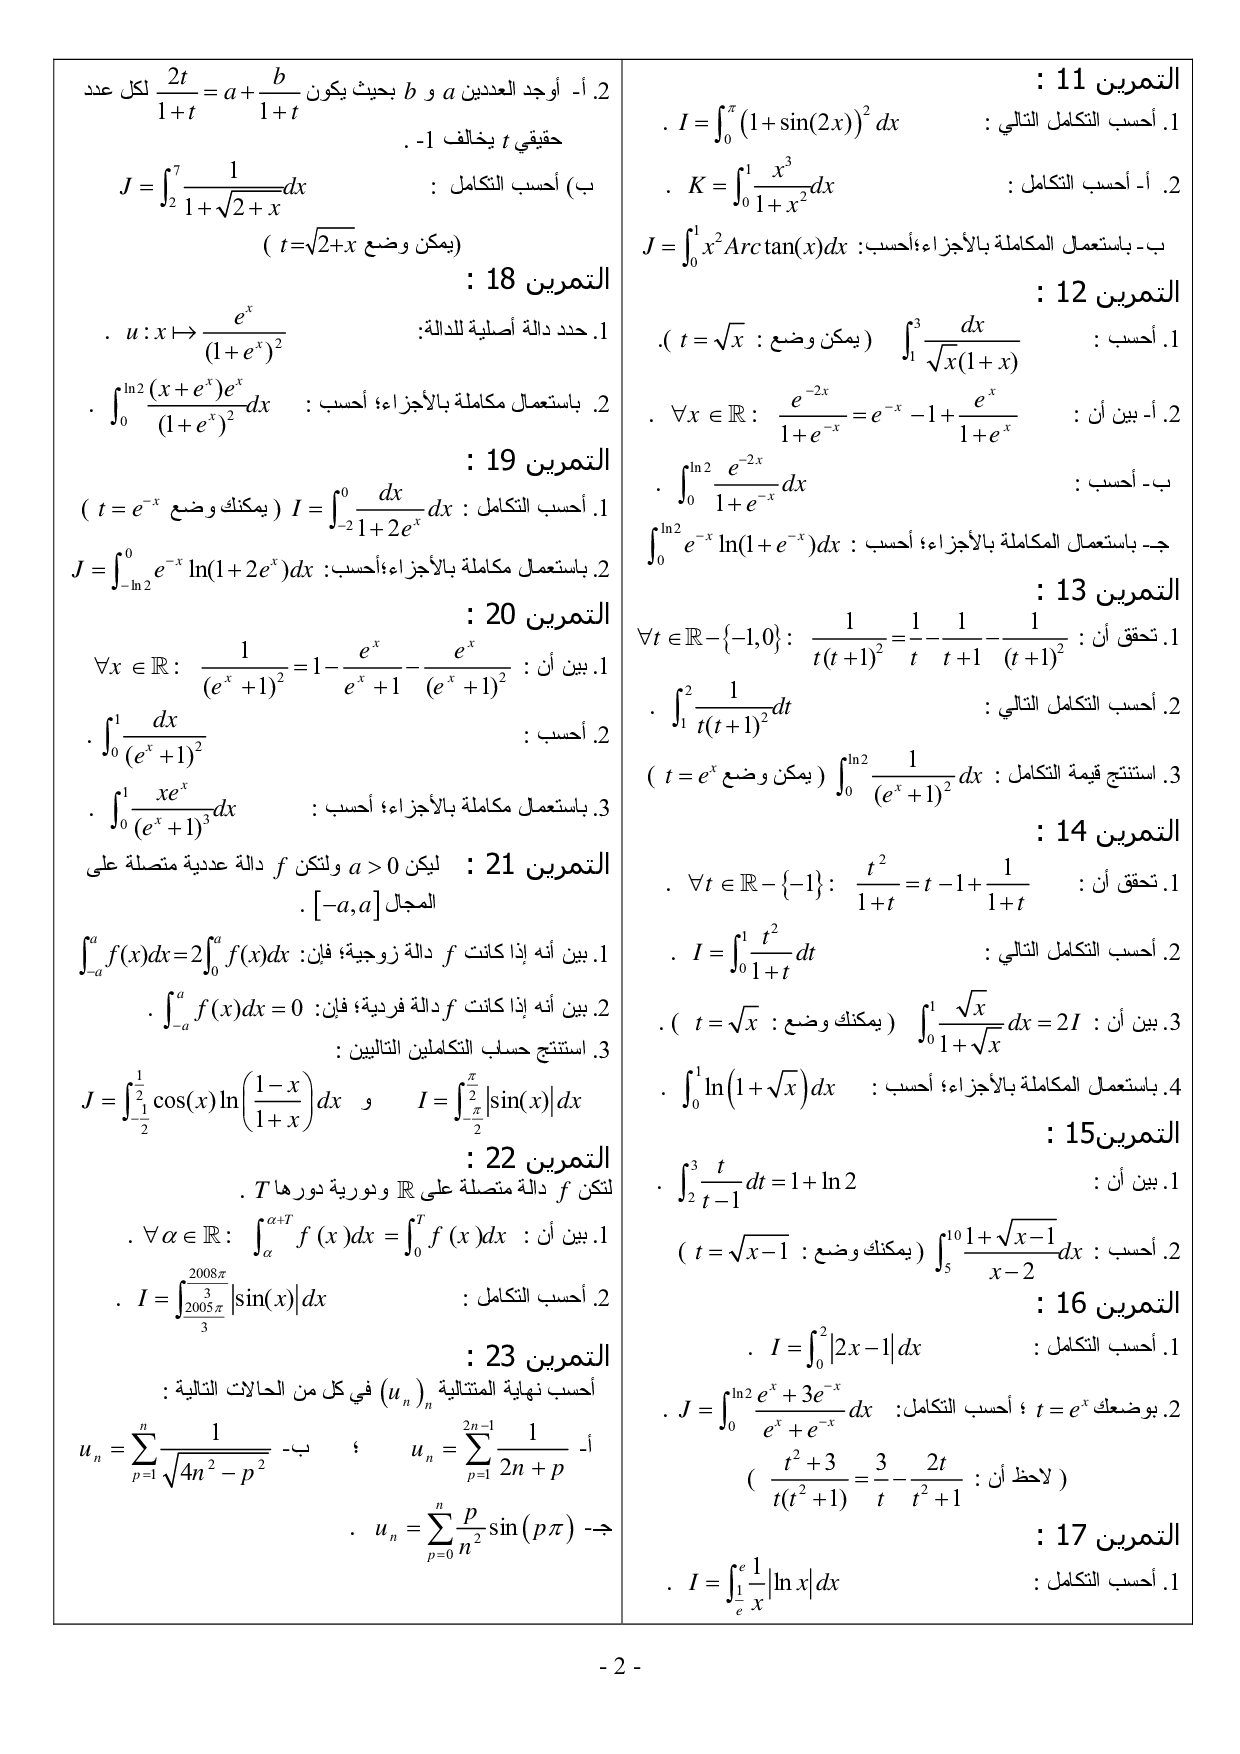 التمرين 11 :
1. أحسب التكامل التالي : $I = \int_0^{\pi} (1+\sin(2x))^2 dx$ .
2. أ- أحسب التكامل : $K = \int_0^1 \frac{x^3}{1+x^2} dx$ .
ب- باستعمال المكاملة بالأجزاء؛أحسب: $J = \int_0^1 x^2 Arc\tan(x) dx$
التمرين 12 :
1. أحسب : $\int_1^3 \frac{dx}{\sqrt{x}(1+x)}$ ( يمكن وضع : $t = \sqrt{x}$ ).
2. أ- بين أن : $\forall x \in \mathbb{R} : \frac{e^{-2x}}{1+e^{-x}} = e^{-x} - 1 + \frac{e^x}{1+e^x}$ .
ب- أحسب : $\int_0^{\ln 2} \frac{e^{-2x}}{1+e^{-x}} dx$ .
جـ- باستعمال المكاملة بالأجزاء؛ أحسب : $\int_0^{\ln 2} e^{-x} \ln(1+e^{-x}) dx$
التمرين 13 :
1. تحقق أن : $\forall t \in \mathbb{R} - \{-1,0\} : \frac{1}{t(t+1)^2} = \frac{1}{t} - \frac{1}{t+1} - \frac{1}{(t+1)^2}$
2. أحسب التكامل التالي : $\int_1^2 \frac{1}{t(t+1)^2} dt$ .
3. استنتج قيمة التكامل : $\int_0^{\ln 2} \frac{1}{(e^x+1)^2} dx$ ( يمكن وضع $t = e^x$ )
التمرين 14 :
1. تحقق أن : $\forall t \in \mathbb{R} - \{-1\} : \frac{t^2}{1+t} = t - 1 + \frac{1}{1+t}$ .
2. أحسب التكامل التالي : $I = \int_0^1 \frac{t^2}{1+t} dt$ .
3. بين أن : $\int_0^1 \frac{\sqrt{x}}{1+\sqrt{x}} dx = 2I$ ( يمكنك وضع : $t = \sqrt{x}$ ) .
4. باستعمال المكاملة بالأجزاء؛ أحسب : $\int_0^1 \ln(1+\sqrt{x}) dx$ .
التمرين15 :
1. بين أن : $\int_2^3 \frac{t}{t-1} dt = 1 + \ln 2$ .
2. أحسب : $\int_5^{10} \frac{1+\sqrt{x-1}}{x-2} dx$ ( يمكنك وضع : $t = \sqrt{x-1}$ )
التمرين 16 :
1. أحسب التكامل : $I = \int_0^2 |2x-1| dx$ .
2. بوضعك $t = e^x$ ؛ أحسب التكامل: $J = \int_0^{\ln 2} \frac{e^x+3e^{-x}}{e^x+e^{-x}} dx$ .
( لاحظ أن : $\frac{t^2+3}{t(t^2+1)} = \frac{3}{t} - \frac{2t}{t^2+1}$ )
التمرين 17 :
1. أحسب التكامل : $I = \int_{\frac{1}{e}}^{e} \frac{1}{x} |\ln x| dx$ .
2. أ- أوجد العددين a و b بحيث يكون $\frac{2t}{1+t} = a + \frac{b}{1+t}$ لكل عدد
حقيقي t يخالف 1- .
ب) أحسب التكامل : $J = \int_2^7 \frac{1}{1+\sqrt{2+x}} dx$
(يمكن وضع $t = \sqrt{2+x}$ )
التمرين 18 :
1. حدد دالة أصلية للدالة: $u : x \mapsto \frac{e^x}{(1+e^x)^2}$ .
2. باستعمال مكاملة بالأجزاء؛ أحسب : $\int_0^{\ln 2} \frac{(x+e^x)e^x}{(1+e^x)^2} dx$ .
التمرين 19 :
1. أحسب التكامل : $I = \int_{-2}^0 \frac{dx}{1+2e^x} dx$ ( يمكنك وضع $t = e^{-x}$ )
2. باستعمال مكاملة بالأجزاء؛أحسب: $J = \int_{-\ln 2}^0 e^{-x} \ln(1+2e^x) dx$
التمرين 20 :
1. بين أن : $\forall x \in \mathbb{R} : \frac{1}{(e^x+1)^2} = 1 - \frac{e^x}{e^x+1} - \frac{e^x}{(e^x+1)^2}$
2. أحسب : $\int_0^1 \frac{dx}{(e^x+1)^2}$ .
3. باستعمال مكاملة بالأجزاء؛ أحسب : $\int_0^1 \frac{xe^x}{(e^x+1)^3} dx$ .
التمرين 21 : ليكن $a > 0$ ولتكن f دالة عددية متصلة على
المجال $[-a, a]$ .
1. بين أنه إذا كانت f دالة زوجية؛ فإن: $\int_{-a}^a f(x)dx = 2\int_0^a f(x)dx$
2. بين أنه إذا كانت f دالة فردية؛ فإن: $\int_{-a}^a f(x)dx = 0$ .
3. استنتج حساب التكاملين التاليين :
$I = \int_{-\frac{\pi}{2}}^{\frac{\pi}{2}} |\sin(x)| dx$ و $J = \int_{-\frac{1}{2}}^{\frac{1}{2}} \cos(x) \ln\left(\frac{1-x}{1+x}\right) dx$
التمرين 22 :
لتكن f دالة متصلة على $\mathbb{R}$ ودورية دورها T .
1. بين أن : $\forall \alpha \in \mathbb{R} : \int_{\alpha}^{\alpha+T} f(x)dx = \int_0^T f(x)dx$ .
2. أحسب التكامل : $I = \int_{\frac{2005\pi}{3}}^{\frac{2008\pi}{3}} |\sin(x)| dx$ .
التمرين 23 :
أحسب نهاية المتتالية $(u_n)_n$ في كل من الحالات التالية :
أ- $u_n = \sum_{p=1}^{2n-1} \frac{1}{2n+p}$ ؛ ب- $u_n = \sum_{p=1}^{n} \frac{1}{\sqrt{4n^2-p^2}}$
جـ- $u_n = \sum_{p=0}^{n} \frac{p}{n^2} \sin(p\pi)$ .
- 2 -